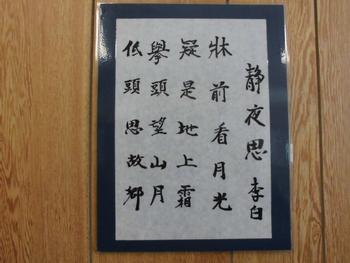 静夜思 李白
牀前看月光
疑是地上霜
舉頭望山月
低頭思故鄉